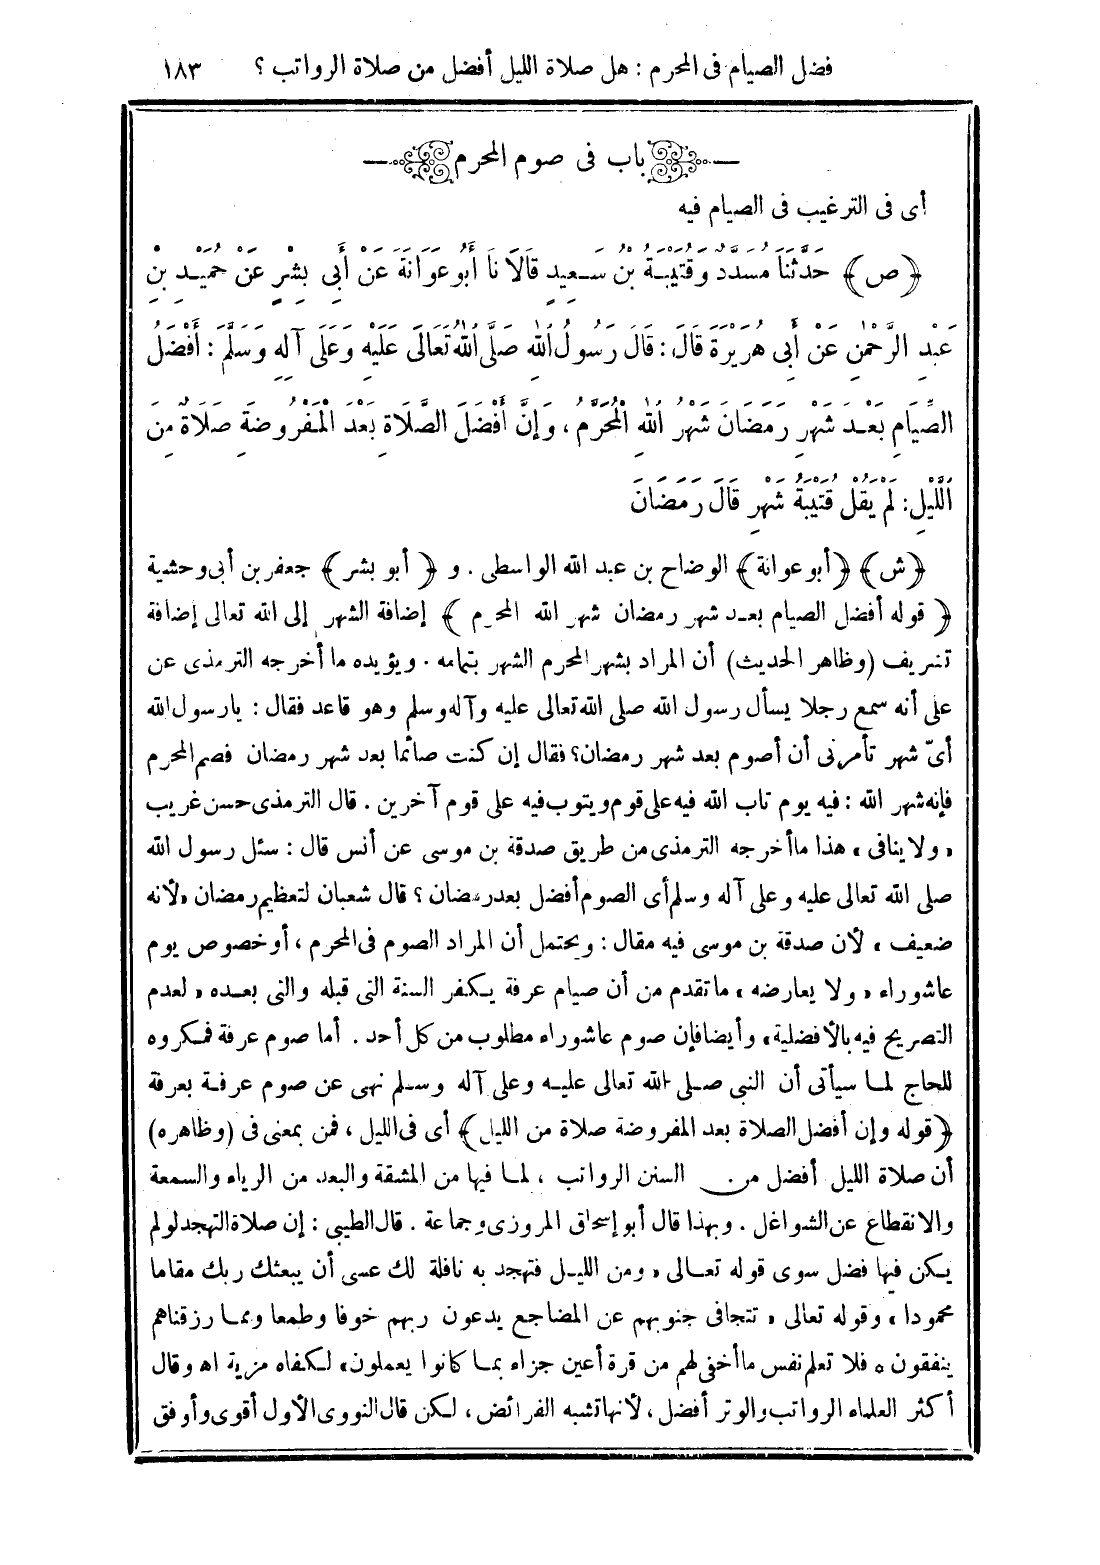 فضل الصيام فى المحرم : هل صلاة الليل أفضل من صلاة الرواتب ؟ ١٨٣
باب فى صوم المحرم
أى فى الترغيب فى الصيام فيه
﴿ص﴾ حَدَّثَنَا مُسَدَّدٌ وَقُتَيْبَةُ بْنُ سَعِيدٍ قَالَا نَا أَبُو عَوَانَةَ عَنْ أَبِي بِشْرٍ عَنْ حُمَيْدِ بْنِ
عَبْدِ الرَّحْمٰنِ عَنْ أَبِي هُرَيْرَةَ قَالَ : قَالَ رَسُولُ اللهِ صَلَّى اللهُ تَعَالَى عَلَيْهِ وَعَلَى آلِهِ وَسَلَّمَ : أَفْضَلُ
الصِّيَامِ بَعْدَ شَهْرِ رَمَضَانَ شَهْرُ اللهِ الْمُحَرَّمُ ، وَإِنَّ أَفْضَلَ الصَّلَاةِ بَعْدَ الْمَفْرُوضَةِ صَلَاةٌ مِنَ
اللَّيْلِ : لَمْ يَقُلْ قُتَيْبَةُ شَهْرِ قَالَ رَمَضَانَ
﴿ش﴾ ﴿أبو عوانة﴾ الوضاح بن عبد الله الواسطى . و ﴿ أبو بشر﴾ جعفر بن أبى وحشية
﴿ قوله أفضل الصيام بعد شهر رمضان شهر الله المحرم ﴾ إضافة الشهر إلى الله تعالى إضافة
تشريف (وظاهر الحديث) أن المراد بشهر المحرم الشهر بتمامه . ويؤيده ما أخرجه الترمذى عن
على أنه سمع رجلا يسأل رسول الله صلى الله تعالى عليه وآله وسلم وهو قاعد فقال : يارسول الله
أىّ شهر تأمرنى أن أصوم بعد شهر رمضان؟ فقال إن كنت صائما بعد شهر رمضان فصم المحرم
فإنه شهر الله : فيه يوم تاب الله فيه على قوم ويتوب فيه على قوم آخرين . قال الترمذى حسن غريب
« ولا ينافى » هذا ما أخرجه الترمذى من طريق صدقة بن موسى عن أنس قال : سئل رسول الله
صلى الله تعالى عليه وعلى آله وسلم أى الصوم أفضل بعد رمضان ؟ قال شعبان لتعظيم رمضان «لأنه
ضعيف » لأن صدقة بن موسى فيه مقال : ويحتمل أن المراد الصوم فى المحرم ، أو خصوص يوم
عاشوراء « ولا يعارضه » ما تقدم من أن صيام عرفة يكفر السنة التى قبله والتى بعده « لعدم
التصريح فيه بالأفضلية» وأيضا فإن صوم عاشوراء مطلوب من كل أحد . أما صوم عرفة فمكروه
للحاج لما سيأتى أن النبى صلى الله تعالى عليه وعلى آله وسلم نهى عن صوم عرفة بعرفة
﴿قوله وإن أفضل الصلاة بعد المفروضة صلاة من الليل﴾ أى فى الليل ، فمن بمعنى فى (وظاهره)
أن صلاة الليل أفضل من السنن الرواتب ، لما فيها من المشقة والبعد من الرياء والسمعة
والانقطاع عن الشواغل . وبهذا قال أبو إسحاق المروزى وجماعة . قال الطيبى : إن صلاة التهجد لو لم
يكن فيها فضل سوى قوله تعالى « ومن الليل فتهجد به نافلة لك عسى أن يبعثك ربك مقاما
محمودا » وقوله تعالى « تتجافى جنوبهم عن المضاجع يدعون ربهم خوفا وطمعا ومما رزقناهم
ينفقون ه فلا تعلم نفس ما أخفى لهم من قرة أعين جزاء بما كانوا يعملون» لكفاه مزية اه وقال
أكثر العلماء الرواتب والوتر أفضل ، لأنها تشبه الفرائض ، لكن قال النووى الأول أقوى وأوفق